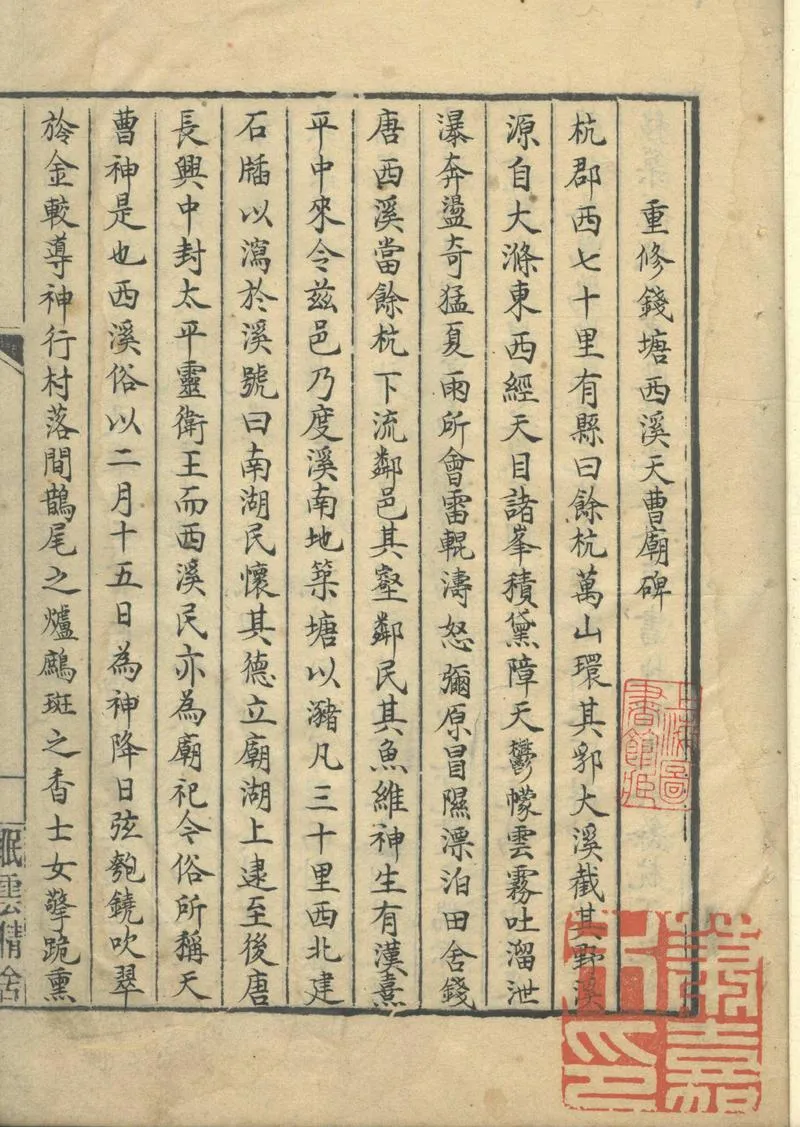 重修錢塘西溪天曹廟碑
杭郡西七十里有縣曰餘杭萬山環其郛大溪截其野溪
源自大滌東西經天目諸峯積黛障天鬱幪雲霧吐溜泄
瀑奔盪奇猛夏雨所會雷輥濤怒彌原冒隰漂泊田舍錢
唐西溪當餘杭下流鄰邑其壑鄰民其魚維神生有漢熹
平中來令茲邑乃度溪南地築塘以瀦凡三十里西北建
石牐以瀉於溪號曰南湖民懷其德立廟湖上逮至後唐
長興中封太平靈衛王而西溪民亦為廟祀今俗所稱天
曹神是也西溪俗以二月十五日為神降日弦匏鐃吹翠
於金較導神行村落間鵲尾之爐鷓斑之香士女擎跪熏
眠雲精舍
上海圖書館藏